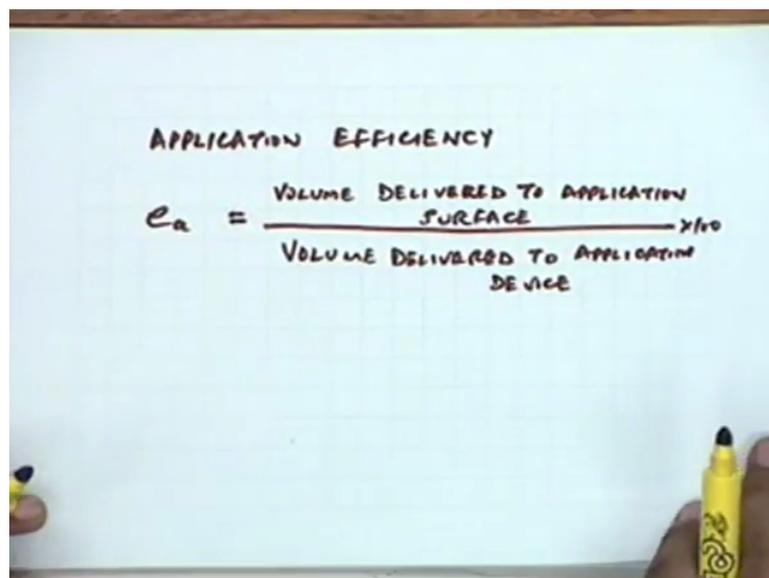 APPLICATION EFFICIENCY
VOLUME DELIVERED TO APPLICATION
SURFACE
ea = x100
VOLUME DELIVERED TO APPLICATION
DEVICE